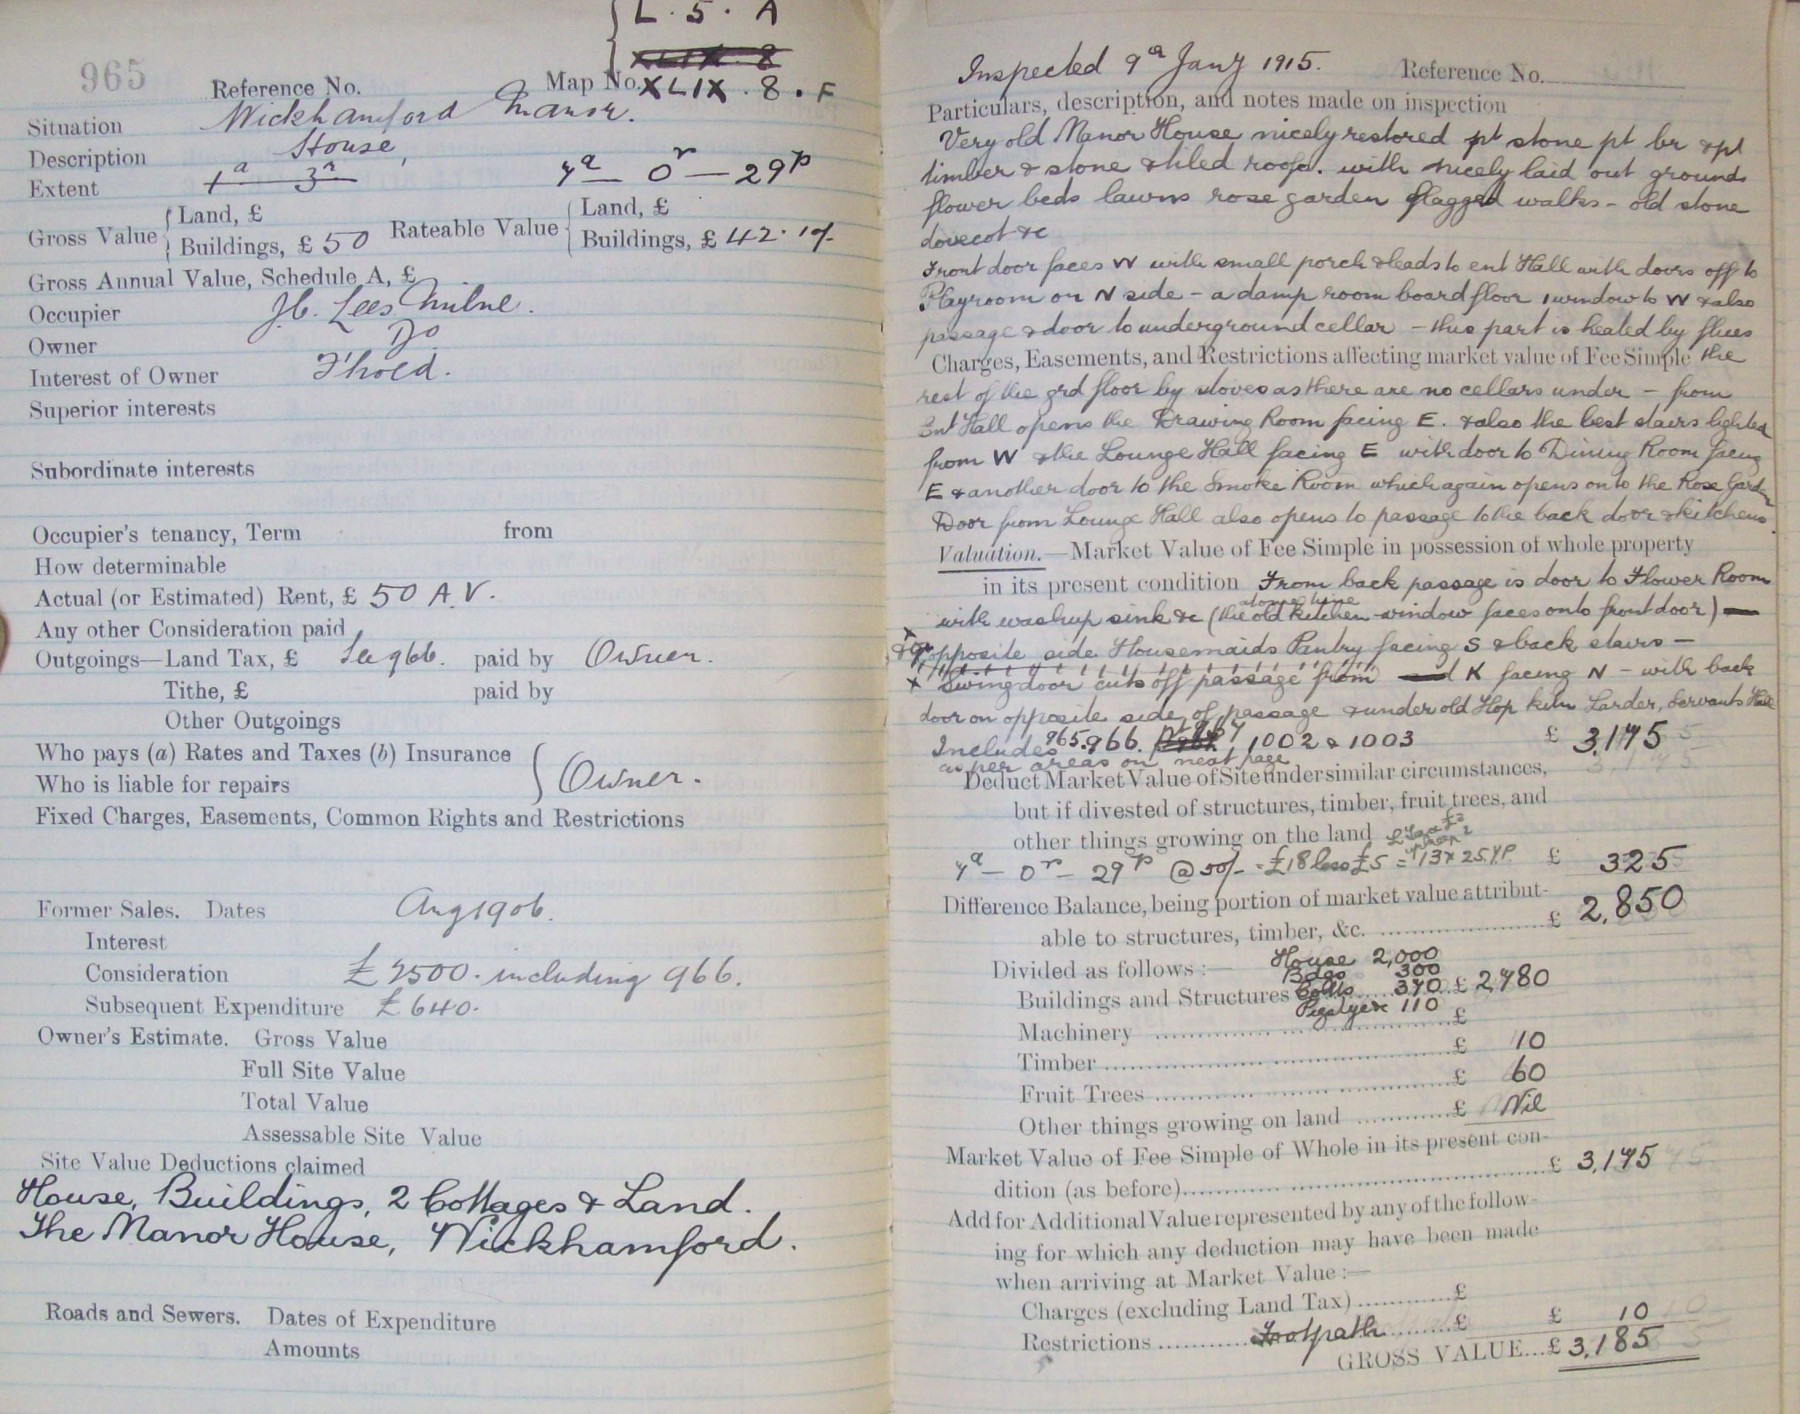 L. 5. A
965
XLIX. 8
Reference No. Map No. XLIX. 8. F
Situation Wickhamford Manor.
Description House,
Extent 1a 3r 7a — 0r — 29p
Gross Value { Land, £
Buildings, £ 50
Rateable Value { Land, £
Buildings, £ 42. 10/-
Gross Annual Value, Schedule A, £
Occupier Lees Milne.
Owner Do
Interest of Owner F'hold.
Superior interests
Subordinate interests
Occupier's tenancy, Term from
How determinable
Actual (or Estimated) Rent, £ 50 A.V.
Any other Consideration paid
Outgoings—Land Tax, £ See 966. paid by Owner.
Tithe, £ paid by
Other Outgoings
Who pays (a) Rates and Taxes (b) Insurance
Who is liable for repairs } Owner.
Fixed Charges, Easements, Common Rights and Restrictions
Former Sales. Dates Aug 1906.
Interest
Consideration £2500. including 966.
Subsequent Expenditure £640.
Owner's Estimate. Gross Value
Full Site Value
Total Value
Assessable Site Value
Site Value Deductions claimed
House, Buildings, 2 Cottages & Land.
The Manor House, Wickhamford.
Roads and Sewers. Dates of Expenditure
Amounts
Inspected 9th Jany 1915. Reference No.
Particulars, description, and notes made on inspection
Very old Manor House nicely restored pt stone pt br & pt
timber & stone & tiled roofs. with nicely laid out grounds
flower beds lawns rose garden flagged walks - old stone
dovecot &c
Front door faces W with small porch & leads to ent Hall with doors off to
Playroom on N side - a damp room board floor 1 window to W & also
passage & door to underground cellar - this part is heated by flues
Charges, Easements, and Restrictions affecting market value of Fee Simple the
rest of the grd floor by stoves as there are no cellars under - from
Ent Hall opens the Drawing Room facing E. & also the best stairs lighted
from W & the Lounge Hall facing E with door to Dining Room facing
E & another door to the Smoke Room which again opens onto the Rose Garden
Door from Lounge Hall also opens to passage to the back door & kitchens
Valuation.—Market Value of Fee Simple in possession of whole property
in its present condition From back passage is door to Flower Room
with washup sink &c (the old kitchen at one time - window faces onto front door) —
opposite side Housemaids Pantry facing S & back stairs —
x Swing door cuts off passage from K facing N - with back
door on opposite side of passage & under old Hop kiln Larder, Servants Hall
Includes 965. 966. 967, 1002 & 1003 £ 3,175
as per areas on next page
Deduct Market Value of Site under similar circumstances,
but if divested of structures, timber, fruit trees, and
other things growing on the land
7a — 0r — 29p @ 50/- = £18 less £5 = 13 x 25 YP. £ 325
Difference Balance, being portion of market value attribut-
able to structures, timber, &c. £ 2,850
Divided as follows:— House 2,000
Bdgs 300
Buildings and Structures Cotts 370 £ 2,780
Pigstyes 110
Machinery £
Timber £ 10
Fruit Trees £ 60
Other things growing on land £ Nil
Market Value of Fee Simple of Whole in its present con-
dition (as before) £ 3,175
Add for Additional Value represented by any of the follow-
ing for which any deduction may have been made
when arriving at Market Value:—
Charges (excluding Land Tax) £
Restrictions Footpath £ £ 10
GROSS VALUE...£ 3,185